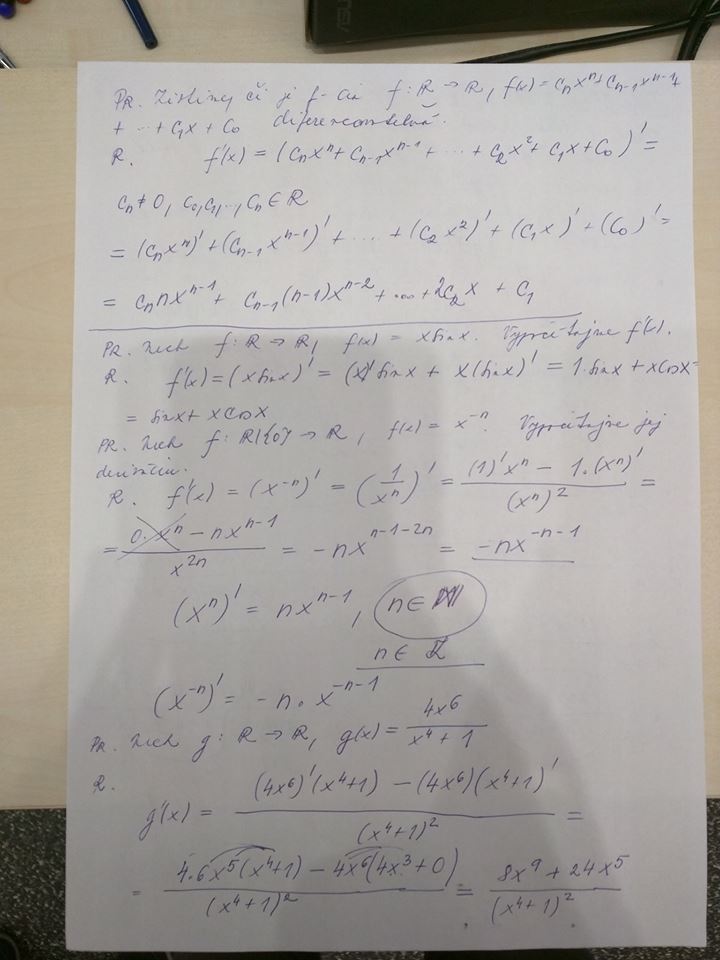 ASUS
PR. Zistime, či je f-cia f: ℝ → ℝ, f(x) = cₙxⁿ + cₙ₋₁xⁿ⁻¹ +
+ ... + c₁x + c₀ diferencovateľná.
R. f'(x) = (cₙxⁿ + cₙ₋₁xⁿ⁻¹ + ... + c₂x² + c₁x + c₀)' =
cₙ ≠ 0, c₀, c₁, ..., cₙ ∈ ℝ
= (cₙxⁿ)' + (cₙ₋₁xⁿ⁻¹)' + ... + (c₂x²)' + (c₁x)' + (c₀)' =
= cₙnxⁿ⁻¹ + cₙ₋₁(n-1)xⁿ⁻² + ... + 2c₂x + c₁
PR. Nech f: ℝ → ℝ, f(x) = x sin x. Vypočítajme f'(x).
R. f'(x) = (x sin x)' = (x)' sin x + x (sin x)' = 1. sin x + x cos x =
= sin x + x cos x
PR. Nech f: ℝ\{0} → ℝ, f(x) = x⁻ⁿ. Vypočítajme jej
deriváciu.
R. f'(x) = (x⁻ⁿ)' = (1/xⁿ)' = ((1)'xⁿ - 1.(xⁿ)')/(xⁿ)² =
= (0.xⁿ - nxⁿ⁻¹)/x²ⁿ = -nxⁿ⁻¹⁻²ⁿ = -nx⁻ⁿ⁻¹
(xⁿ)' = nxⁿ⁻¹, n ∈ ℕ
n ∈ ℤ
(x⁻ⁿ)' = -n.x⁻ⁿ⁻¹
PR. Nech g: ℝ → ℝ, g(x) = 4x⁶/(x⁴ + 1)
R.
g'(x) = ((4x⁶)'(x⁴+1) - (4x⁶)(x⁴+1)')/(x⁴+1)² =
= (4.6x⁵(x⁴+1) - 4x⁶(4x³+0))/(x⁴+1)² = (8x⁹ + 24x⁵)/(x⁴+1)²